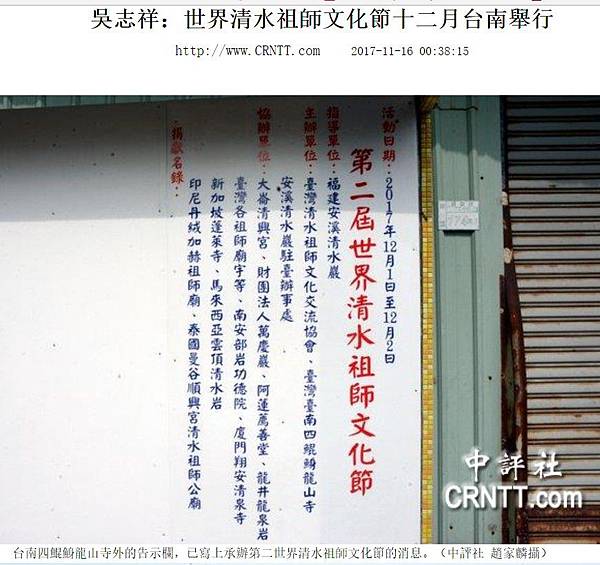 吳志祥：世界清水祖師文化節十二月台南舉行
http://www.CRNTT.com 2017-11-16 00:38:15
活動日期：2017年12月1日至12月2日
第二屆世界清水祖師文化節
指導單位：福建安溪清水巖
主辦單位：臺灣清水祖師文化交流協會、臺灣臺南四鯤鯓龍山寺
安溪清水巖駐臺辦事處
協辦單位：大崙清興宮、財團法人萬慶巖、阿蓮薦善堂、龍井龍泉岩
臺灣各祖師廟宇等、南安部岩功德院、廈門翔安清泉寺
新加坡蓬萊寺、馬來西亞雲頂清水岩
印尼丹絨加赫祖師廟、泰國曼谷順興宮清水祖師公廟
捐獻名錄：
中評社
CRNTT.com
台南四鯤鯓龍山寺外的告示欄，已寫上承辦第二世界清水祖師文化節的消息。（中評社 趙家麟攝）